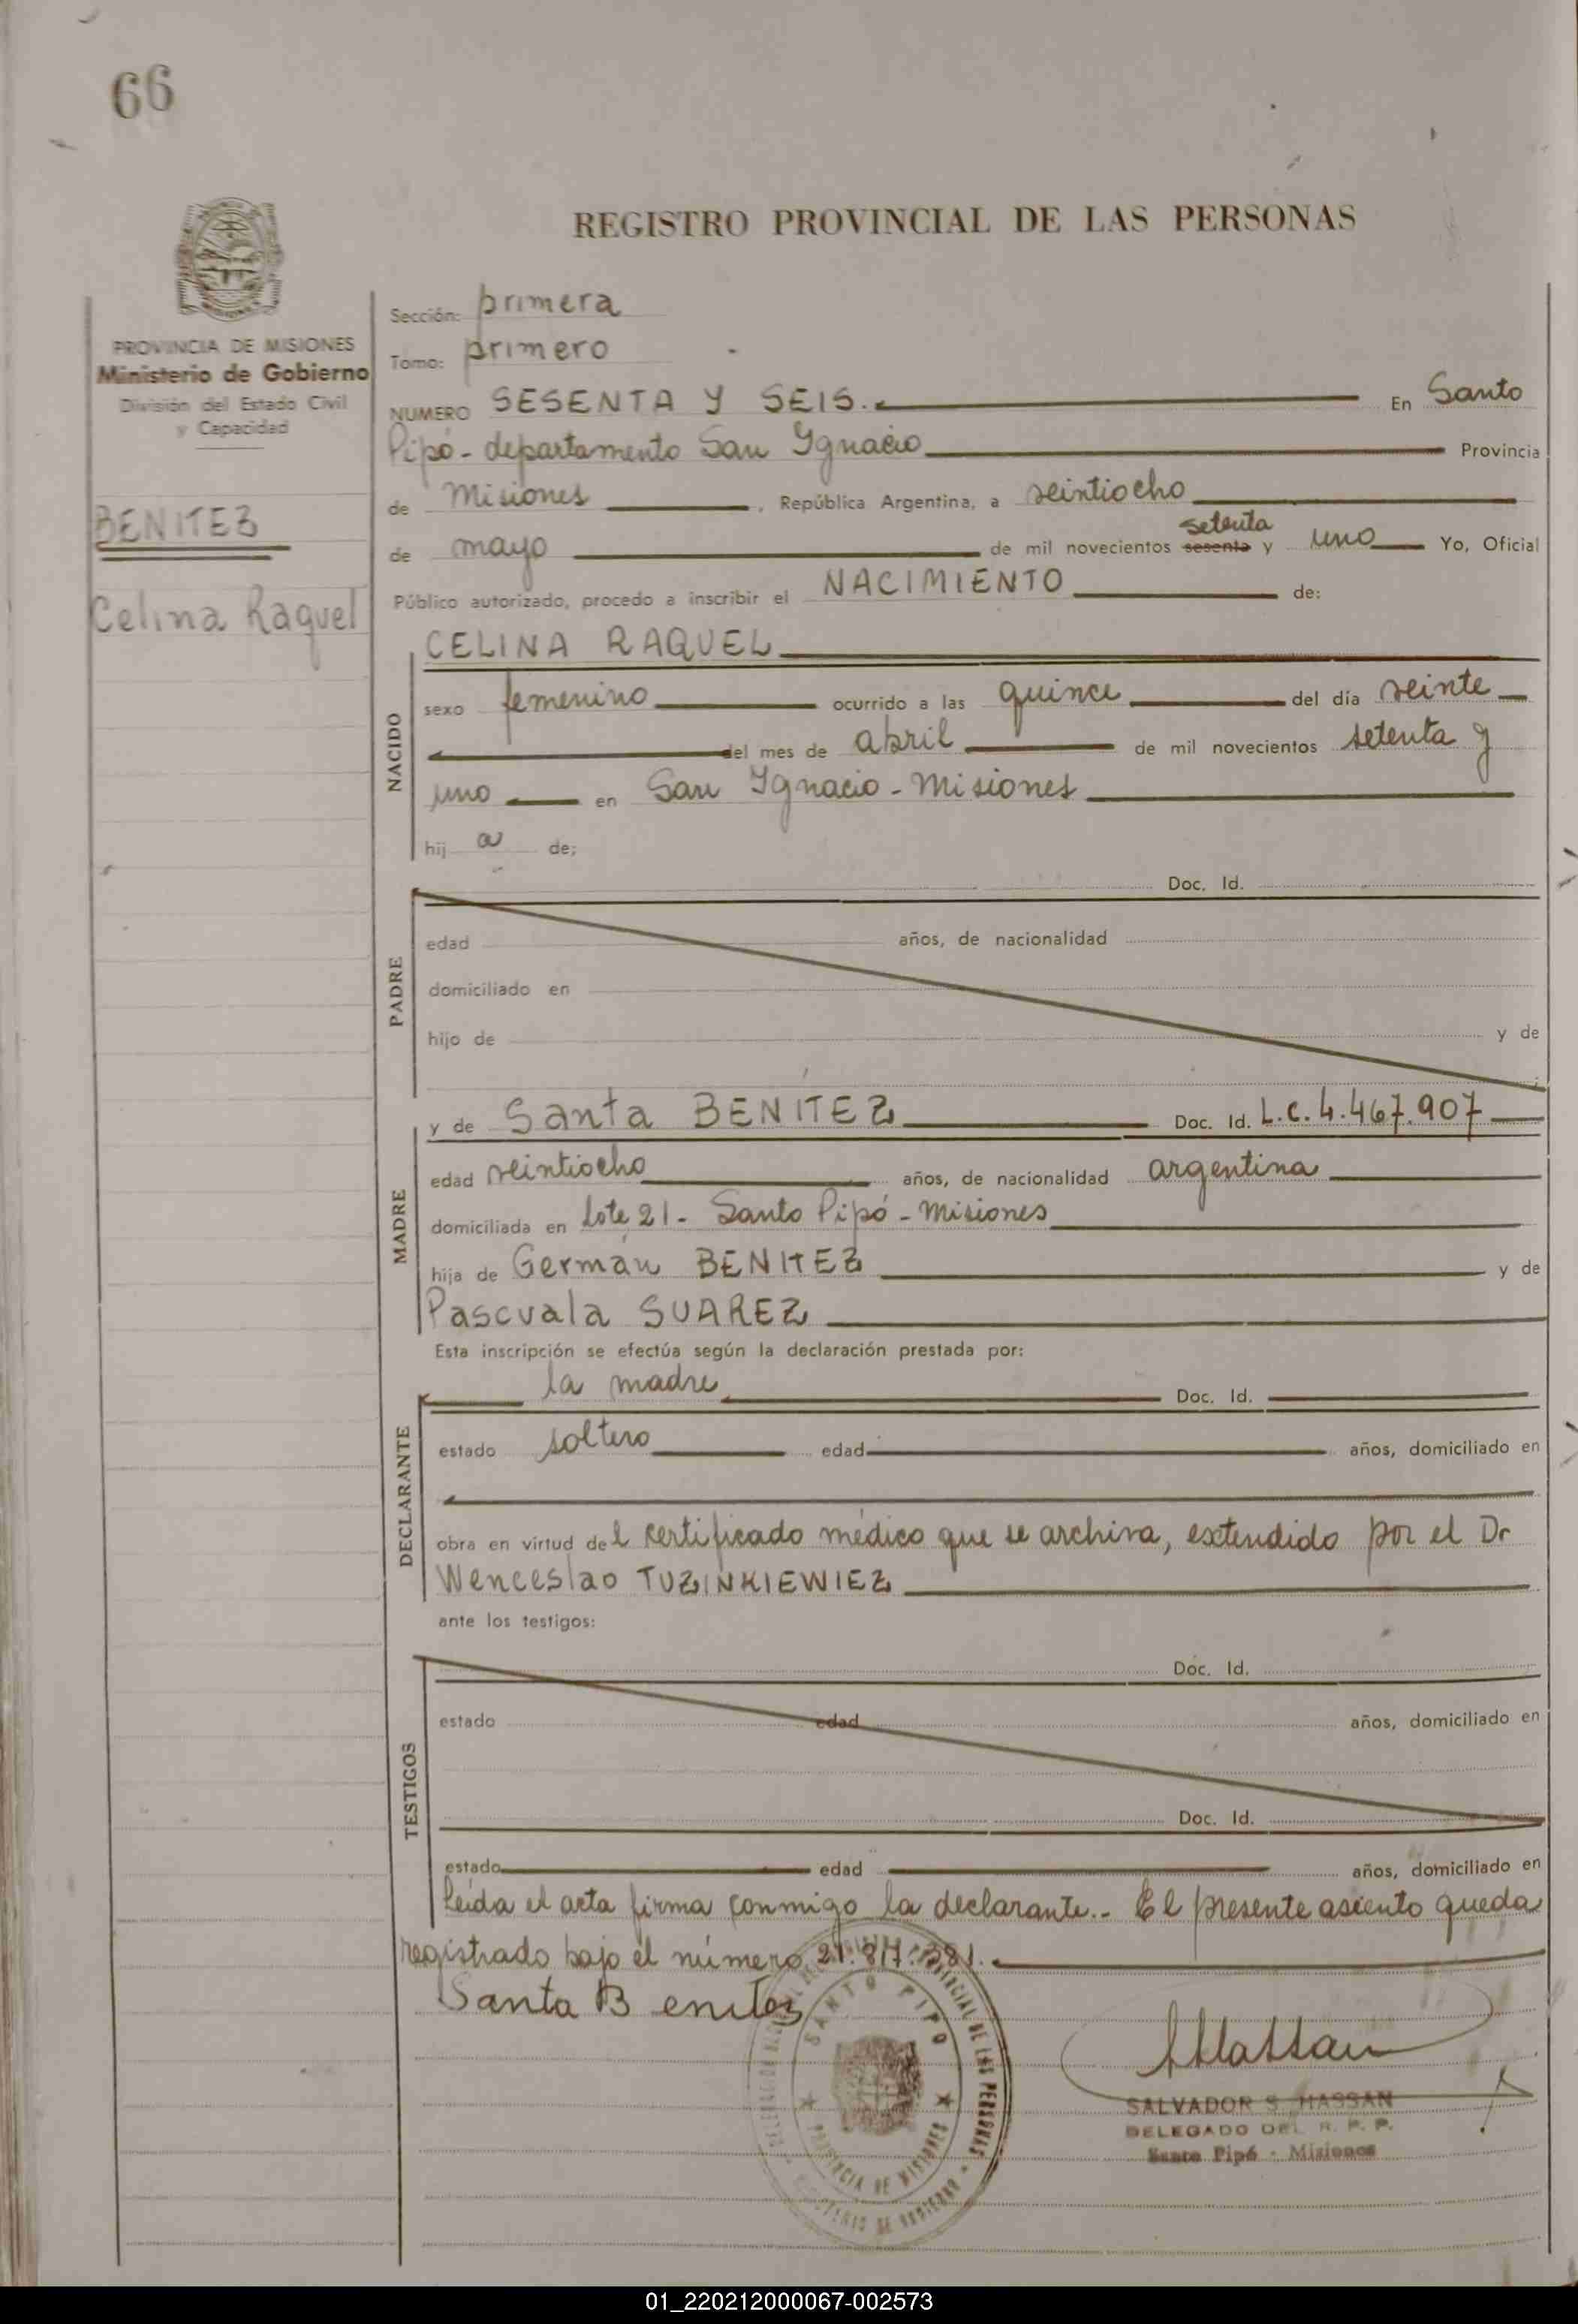 66
REGISTRO PROVINCIAL DE LAS PERSONAS
PROVINCIA DE MISIONES
Ministerio de Gobierno
División del Estado Civil
y Capacidad
BENITEZ
Celina Raquel
Sección: primera
Tomo: primero
NUMERO SESENTA Y SEIS. En Santo
Pipó - departamento San Ygnacio Provincia
de Misiones , República Argentina, a veintiocho
setenta
de mayo de mil novecientos sesenta y uno Yo, Oficial
Público autorizado, procedo a inscribir el NACIMIENTO de:
CELINA RAQUEL
NACIDO
sexo femenino ocurrido a las quince del día veinte
del mes de abril de mil novecientos setenta y
uno en San Ygnacio - Misiones
hij a de;
PADRE
Doc. Id.
edad años, de nacionalidad
domiciliado en
hijo de y de
MADRE
y de Santa BENITEZ Doc. Id. L.C. 4.467.907
edad veintiocho años, de nacionalidad argentina
domiciliada en Lote 21 - Santo Pipó - Misiones
hija de Germán BENITEZ y de
Pascuala SUAREZ
Esta inscripción se efectúa según la declaración prestada por:
DECLARANTE
la madre Doc. Id.
estado soltero edad años, domiciliado en
obra en virtud del certificado médico que se archiva, extendido por el Dr
Wenceslao TUZINKIEWIEZ
ante los testigos:
TESTIGOS
Doc. Id.
estado edad años, domiciliado en
Doc. Id.
estado edad años, domiciliado en
Leída el acta firma conmigo la declarante.- El presente asiento queda
registrado bajo el número 21.817.381.
Santa B enitez
SANTO PIPO
PROVINCIA DE MISIONES
SALVADOR S. HASSAN
DELEGADO DEL R. P. P.
Santo Pipó - Misiones
01_220212000067-002573